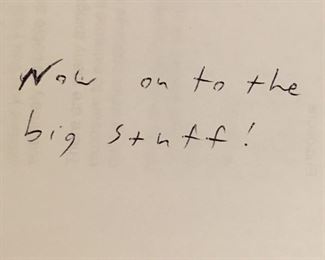 Now on to the
big stuff!